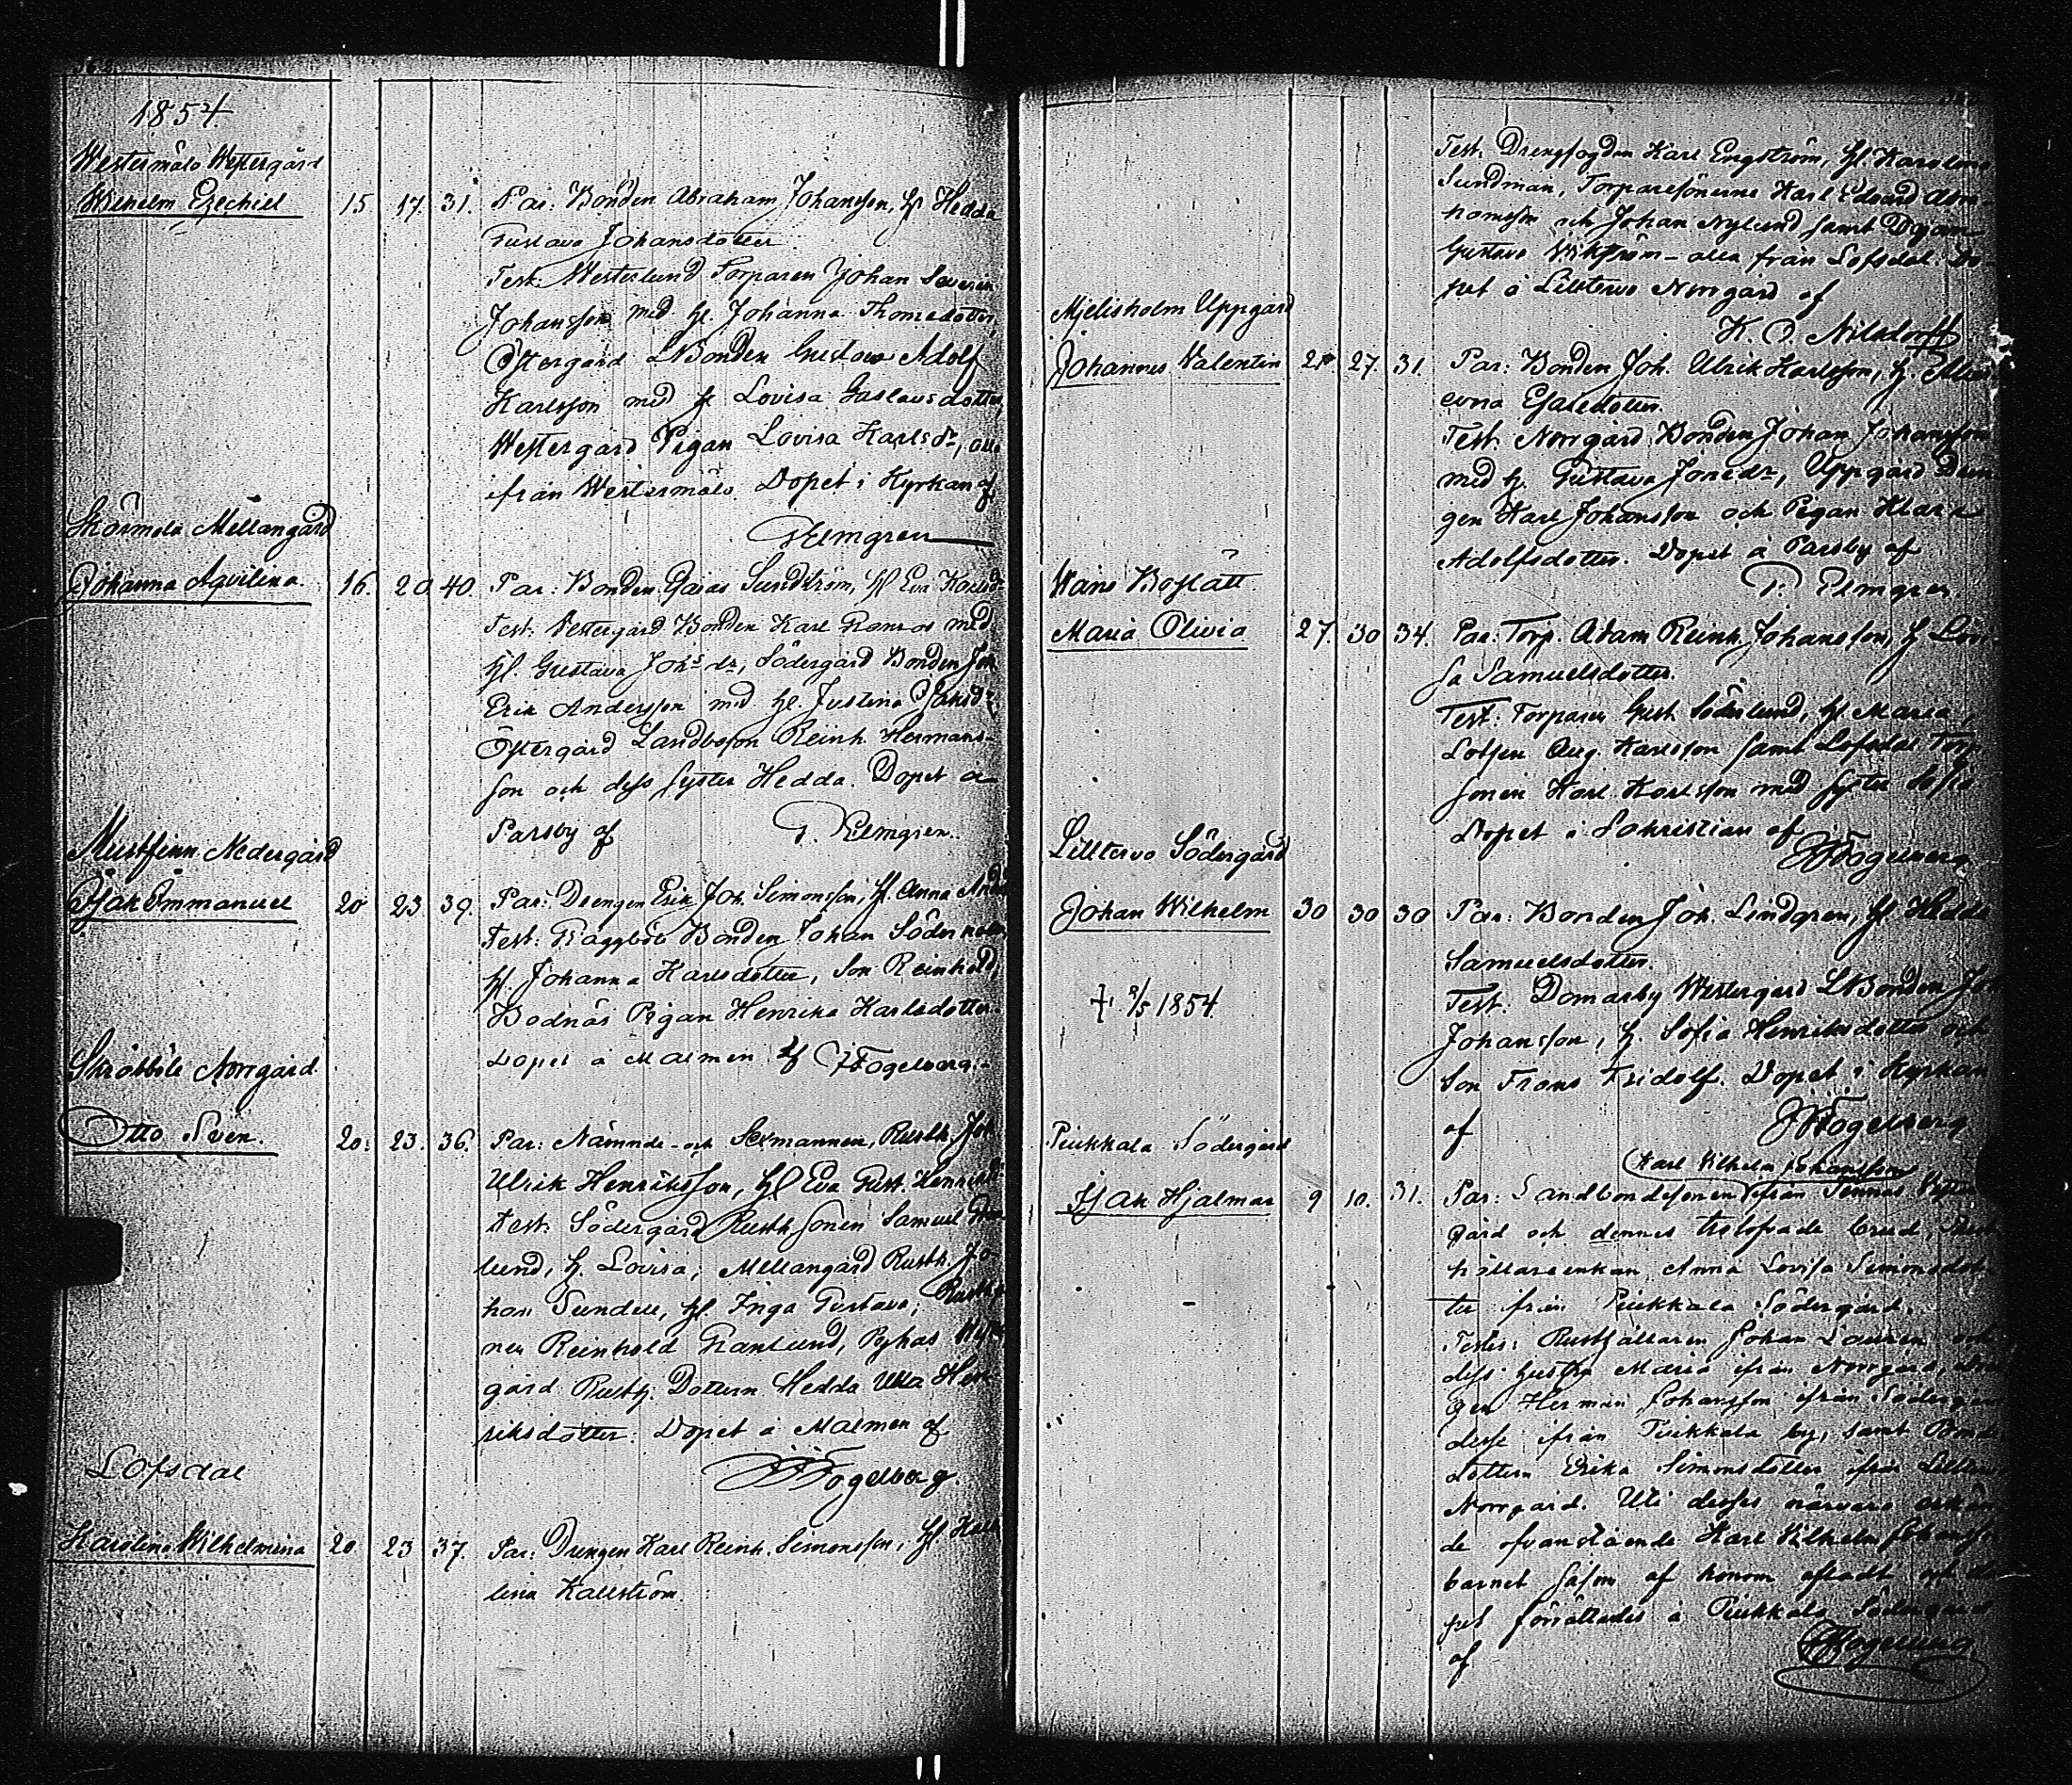 1854
Westermälö Westergård
Wilhelm Ezechiel 15 17. 31. Par: Bonden Abraham Johansson, H. Hedda
Gustava Johansdotter.
Test: Westerlund Torparen Johan Severin
Johansson med H. Johanna Thomsdotter,
Östergård LBonden Gustav Adolf
Karlsson med H. Lovisa Gustavsdotter,
Westergård Pigan Lovisa Karlsdr, alla
ifrån Westermälö. Döpet i Kyrkan af
Elmgren
Mellangård
Johanna Aqvilina 16. 20 40. Par: Bonden Esaias Sundström, H. Eva Karlsdr
Test: Westergård Bonden Karl med
H. Gustava Johsdr, Södergård Bonden Joh
Erik Andersson med H. Justina
Östergård Landbosson Reinh. Hermans-
son och dess syster Hedda. Döpet å
Parsby af Elmgren.
Mustfinn Nedergård
Isak Immanuel 20 23 39. Par: Drengen Erik Joh. Simonsson, H. Anna
Test: Råggböle Bonden Johan Söderholm
H. Johanna Karlsdotter, Son Reinhold,
Bodnäs Pigan Henrika Karlsdotter.
Döpet å Malmen af Fogelberg.
Skräbböle Norrgård
Otto Sven. 20. 23. 36. Par: Nämnde- och Sexmannen, Rusth. Joh
Ulrik Henriksson, H. Eva Gust. Henriksdr
Test: Södergård Rusth. Sonen Samuel Gran-
lund, H. Lovisa; Mellangård Rusth. Jo-
han Sundell, H. Inga Gustava;
nen Reinhold Granlund,
gård Rusth. Dottern Hedda Ulla Hen-
riksdotter. Döpet å Malmen af
Fogelberg.
Lofsdal
Karolina Wilhelmina 20 23 37. Par: Drengen Karl Reinh. Simonsson, H. Karo-
lina Källström.
Test: Drengfogden Karl Engström, H. Karolina
Sundman, Torparesönerne Karl Edvard Abra
hamsson och Johan Nylund samt Dejan
Gustava Wikström - alla från Lofsdal. Dö-
pet å Lilltervo Norrgård af
K. O. Nilsdorff
Mjelisholm Uppgård
Johannes Valentin 27. 31. Par: Bonden Joh. Ulrik Karlsson, H.
Esaiedotter.
Test: Norrgård Bonden Johan Johansson
med H. Gustava Jonsdr, Uppgård Dren
gen Karl Johansson och Pigan Klara
Adolfsdotter. Döpet å Parsby af
Elmgren
Wånö Boslätt
Maria Olivia 27. 30 34. Par: Torp. Adam Reinh. Johansson, H. Lovi
sa Samuelsdotter.
Test: Torparen Gust. Söderlund, H. Maria,
Lotsen Aug. Karlsson samt Lofsdal Torp
sonen Karl Karlsson med syster Sofia
Döpet i Sakristian af
Fogelberg
Lilltervo Södergård
Johan Wilhelm 30 30 30 Par: Bonden Joh. Lindgren, H. Hedda
Samuelsdotter.
† 9/5 1854
Test: Domarby Westergård LBonden Joh
Johansson, H. Sofia Henriksdotter och
Son Frans Fridolf. Döpet i Kyrkan
af Fogelberg
Piukkala Södergård
Karl Wilhelm Johansson
Isak Hjalmar 9 10. 31. Par: Landbondesonen ifrån Tennäs
gård och dennes trolofvade brud, Rust
hållareenkan Anna Lovisa Simonsdot-
ter från Piukkala Södergård.
Testes: Rusthållaren Johan Lauren och
dess hustru Maria ifrån Norrgård, Dren
gen Herman Johansson ifrån Södergård
desse ifrån Piukkala by, samt Bonde
dottern Erika Simonsdotter från Lilltervo
Norrgård. Uti desses närvaro erkän
de ofvanstående Karl Wilhelm Johansson
barnet såsom af honom afladt och dö
pet förrättades å Piukkala Södergård
af Fogelberg